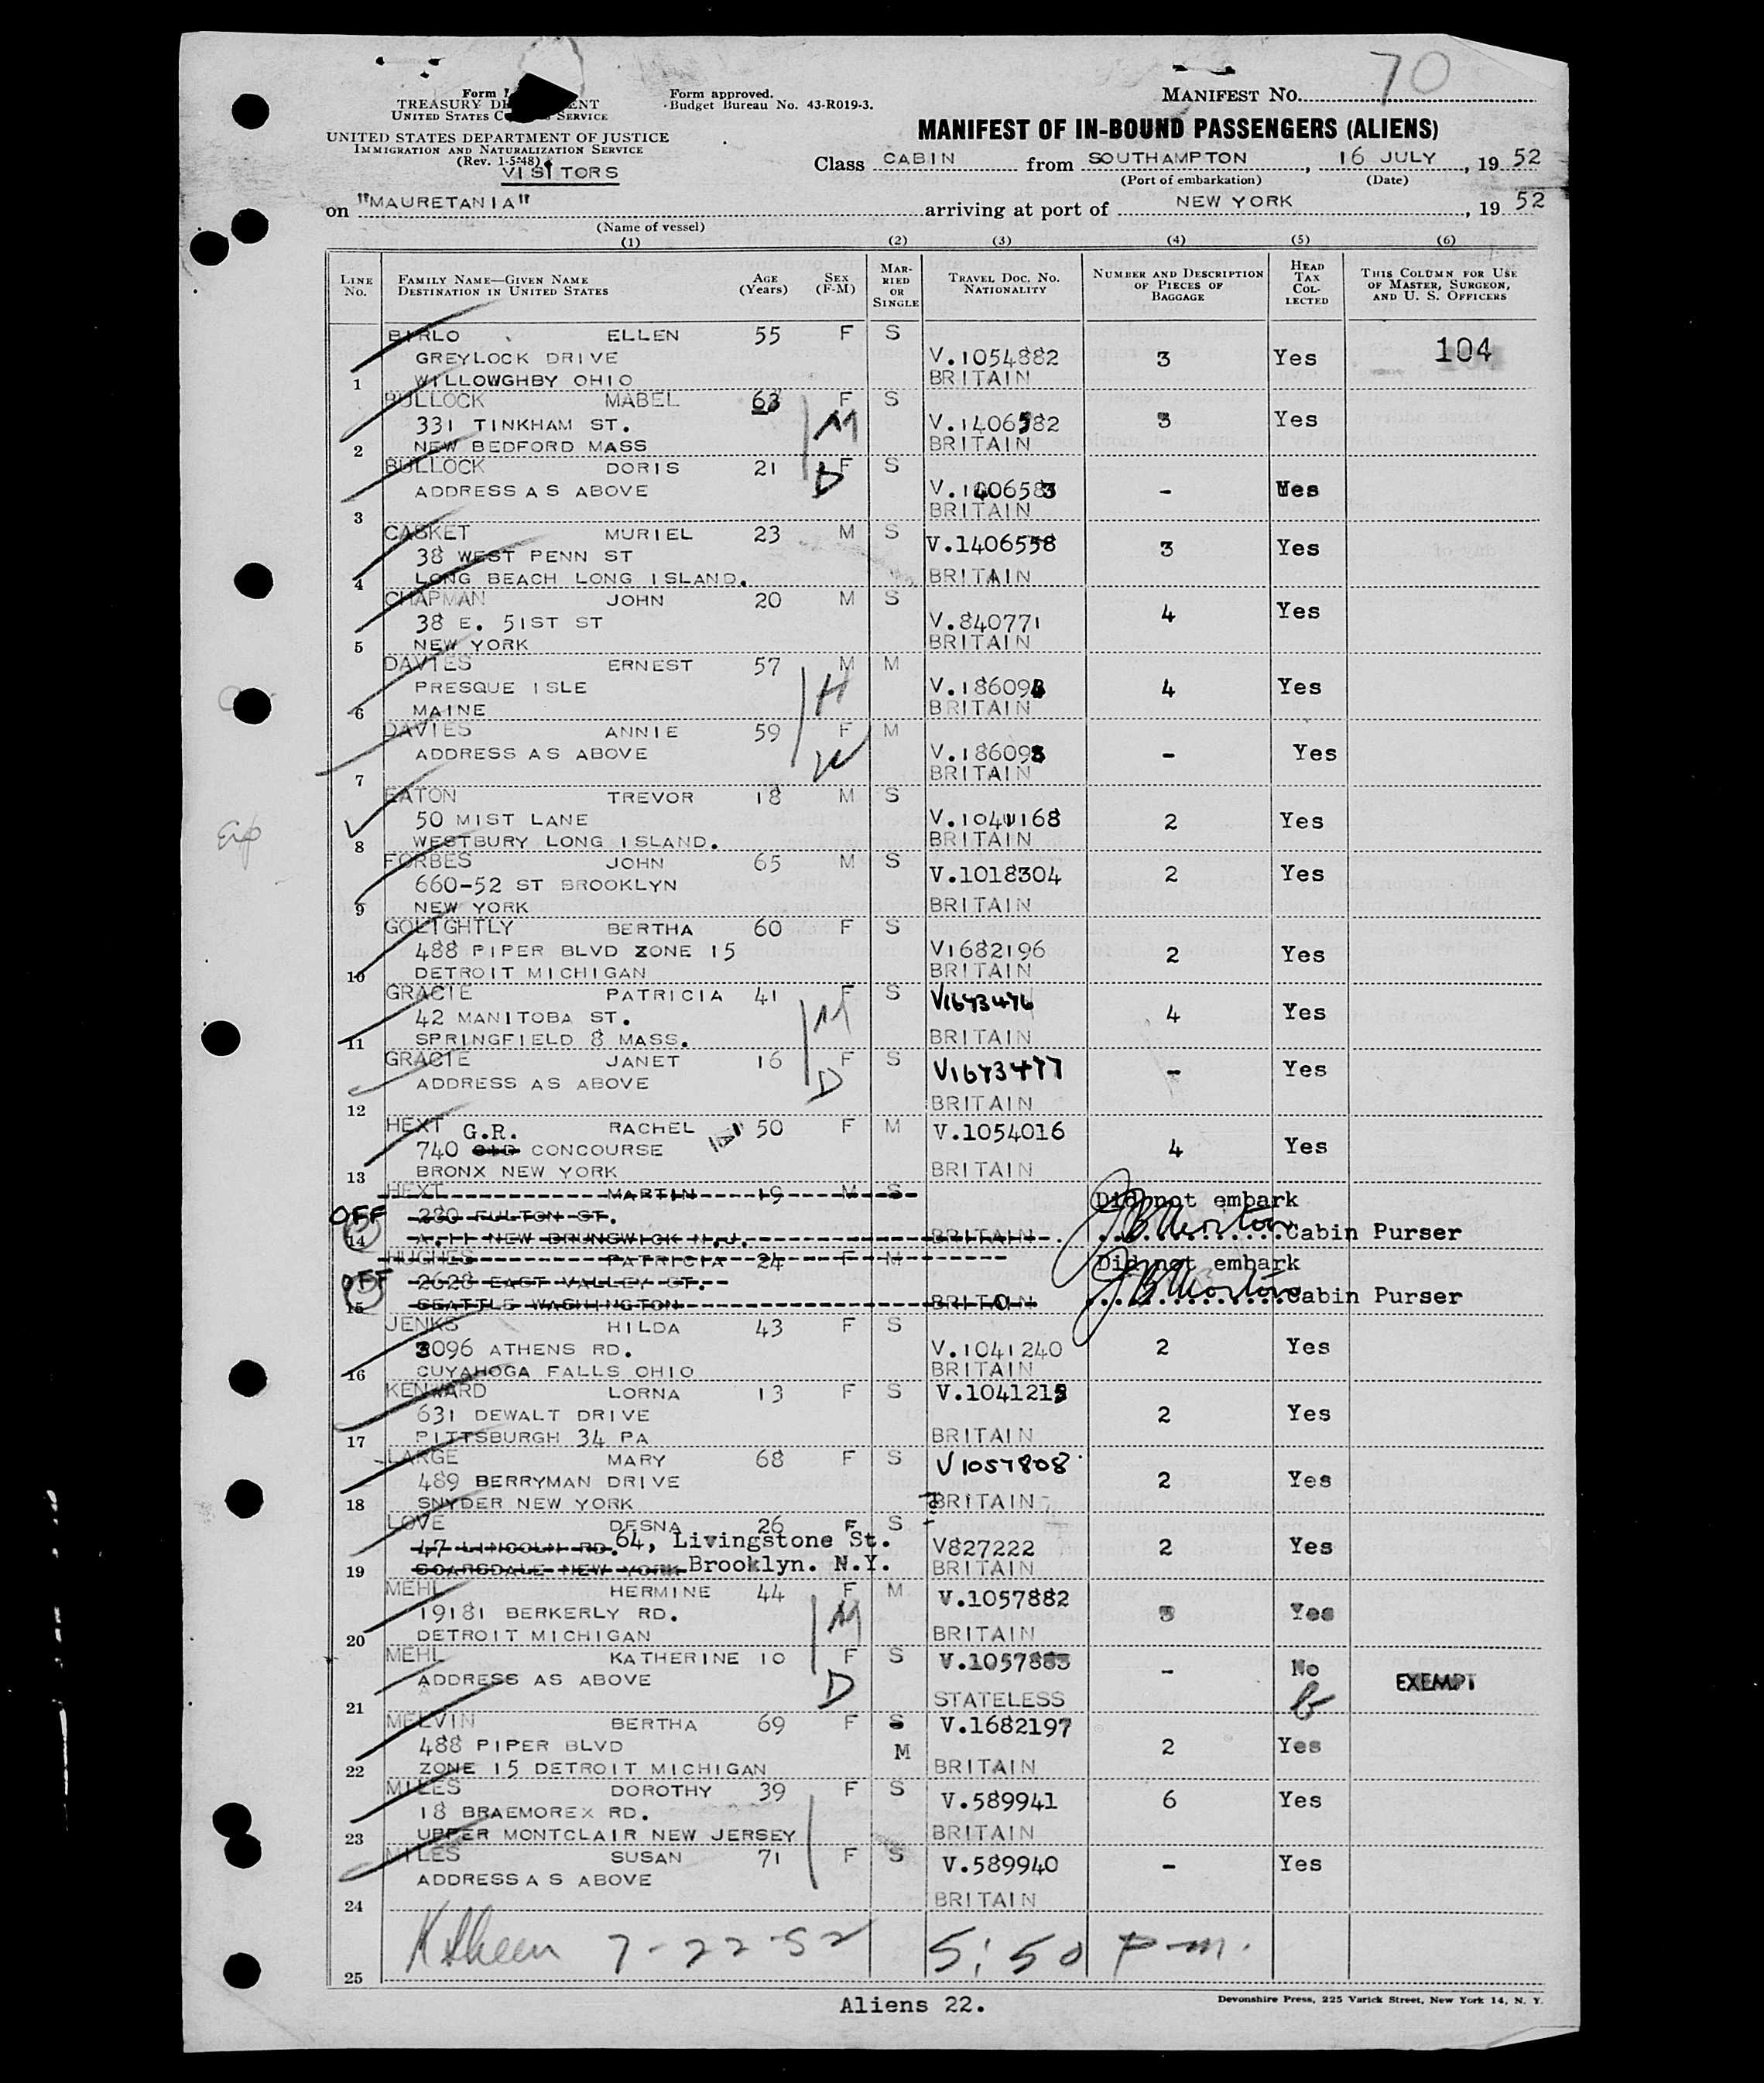 70
Form
TREASURY DE ENT
UNITED STATES C SERVICE
Form approved.
Budget Bureau No. 43-R019-3.
MANIFEST No.
UNITED STATES DEPARTMENT OF JUSTICE
IMMIGRATION AND NATURALIZATION SERVICE
(Rev. 1-5-48)
VISITORS
MANIFEST OF IN-BOUND PASSENGERS (ALIENS)
Class CABIN from SOUTHAMPTON, 16 JULY, 19 52
(Port of embarkation) (Date)
on "MAURETANIA" arriving at port of NEW YORK, 19 52
(Name of vessel)
(1) (2) (3) (4) (5) (6)
LINE No. FAMILY NAME—GIVEN NAME DESTINATION IN UNITED STATES AGE (Years) SEX (F-M) MARRIED OR SINGLE TRAVEL DOC. No. NATIONALITY NUMBER AND DESCRIPTION OF PIECES OF BAGGAGE HEAD TAX COLLECTED THIS COLUMN FOR USE OF MASTER, SURGEON, AND U. S. OFFICERS
ELLEN 55 F S
GREYLOCK DRIVE V.1054882 3 Yes 104
1 WILLOWGHBY OHIO BRITAIN
BULLOCK MABEL 63 F S
331 TINKHAM ST. M V.1406582 3 Yes
2 NEW BEDFORD MASS BRITAIN
BULLOCK DORIS 21 F S
ADDRESS AS ABOVE D V.1406583 - Yes
3 BRITAIN
CASKET MURIEL 23 M S
38 WEST PENN ST V.1406558 3 Yes
4 LONG BEACH LONG ISLAND. BRITAIN
CHAPMAN JOHN 20 M S
38 E. 51ST ST V.840771 4 Yes
5 NEW YORK BRITAIN
DAVIES ERNEST 57 M M
PRESQUE ISLE H 4 Yes
6 MAINE BRITAIN
DAVIES ANNIE 59 F M
ADDRESS AS ABOVE W V.186093 - Yes
7 BRITAIN
EATON TREVOR 18 M S
50 MIST LANE 2 Yes
8 WESTBURY LONG ISLAND. BRITAIN
FORBES JOHN 65 M S
660-52 ST BROOKLYN V.1018304 2 Yes
9 NEW YORK BRITAIN
GOLIGHTLY BERTHA 60 F S
488 PIPER BLVD ZONE 15 V1682196 2 Yes
10 DETROIT MICHIGAN BRITAIN
GRACIE PATRICIA 41 F S
42 MANITOBA ST. M V1673476 4 Yes
11 SPRINGFIELD 8 MASS. BRITAIN
GRACIE JANET 16 F S
ADDRESS AS ABOVE D V1673477 - Yes
12 BRITAIN
HEXT RACHEL 50 F M V.1054016
740 G.R. CONCOURSE 4 Yes
13 BRONX NEW YORK BRITAIN
HEXT MARTIN 19 M S Did not embark
OFF 280 FULTON ST.
14 A.11 NEW BRUNSWICK N.J. BRITAIN J B Morton Cabin Purser
HUGHES PATRICIA 24 F M Did not embark
OFF 2628 EAST VALLEY ST.
15 SEATTLE WASHINGTON BRITAIN J B Morton Cabin Purser
JENKS HILDA 43 F S
3096 ATHENS RD. V.1041240 2 Yes
16 CUYAHOGA FALLS OHIO BRITAIN
KENWARD LORNA 13 F S V.1041213
631 DEWALT DRIVE 2 Yes
17 PITTSBURGH 34 PA BRITAIN
LARGE MARY 68 F S V1057808
489 BERRYMAN DRIVE 2 Yes
18 SNYDER NEW YORK BRITAIN
LOVE DESNA 26 F S
47 LINCOLN RD. 64, Livingstone St. V827222 2 Yes
19 SCARSDALE NEW YORK Brooklyn. N.Y. BRITAIN
MEHL HERMINE 44 F M V.1057882
19181 BERKERLY RD. M 3 Yes
20 DETROIT MICHIGAN BRITAIN
MEHL KATHERINE 10 F S V.1057883
ADDRESS AS ABOVE D - No EXEMPT
21 STATELESS
MELVIN BERTHA 69 F S V.1682197
488 PIPER BLVD M 2 Yes
22 ZONE 15 DETROIT MICHIGAN BRITAIN
MILES DOROTHY 39 F S
18 BRAEMOREX RD. V.589941 6 Yes
23 UPPER MONTCLAIR NEW JERSEY BRITAIN
MILES SUSAN 71 F S
ADDRESS AS ABOVE V.589940 - Yes
24 BRITAIN
7-22-52 5:50 p-m.
25
Aliens 22.
Devonshire Press, 225 Varick Street, New York 14, N. Y.